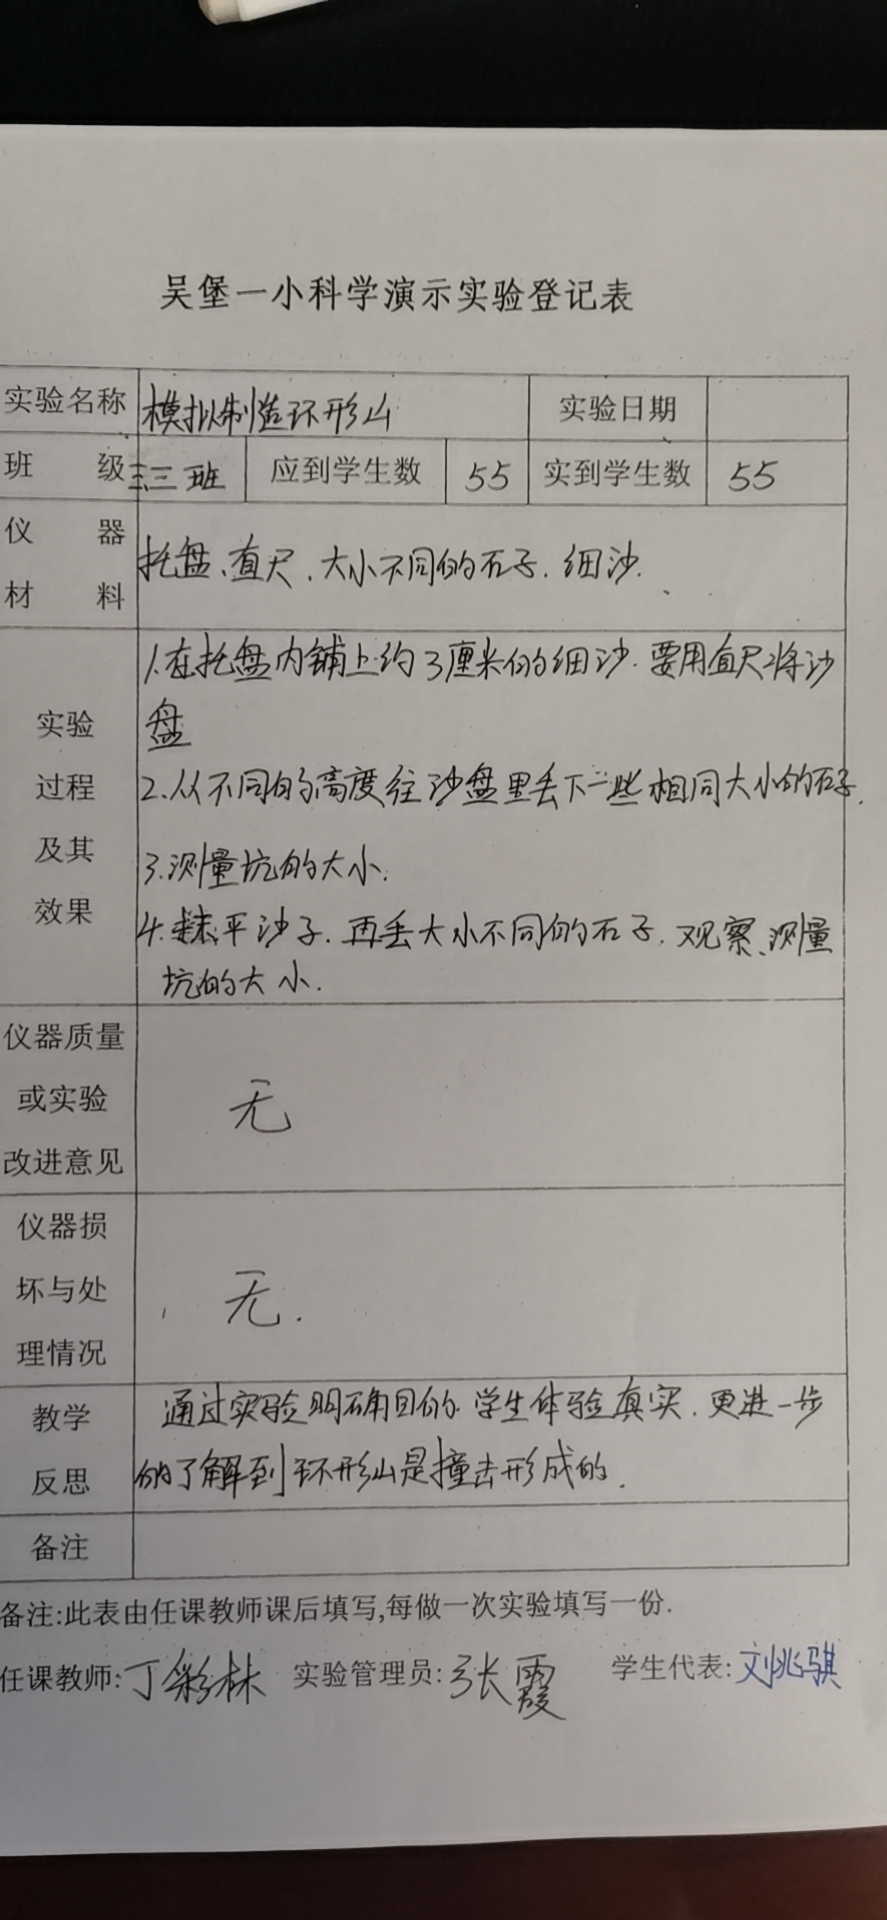 吴堡一小科学演示实验登记表
实验名称 模拟制造环形山 实验日期
班 级 三三班 应到学生数 55 实到学生数 55
仪 器
材 料
托盘、直尺、大小不同的石子、细沙.
实验
过程
及其
效果
1.在托盘内铺上约3厘米的细沙.要用直尺将沙
盘
2.从不同的高度往沙盘里丢下一些相同大小的石子.
3.测量坑的大小.
4.抹平沙子.再丢大小不同的石子,观察、测量
坑的大小.
仪器质量
或实验
改进意见
无
仪器损
坏与处
理情况
无.
教学
反思
通过实验明确目的.学生体验真实.更进一步
的了解到环形山是撞击形成的.
备注
备注:此表由任课教师课后填写,每做一次实验填写一份.
任课教师:丁彩林 实验管理员:张霞 学生代表:刘兆骐